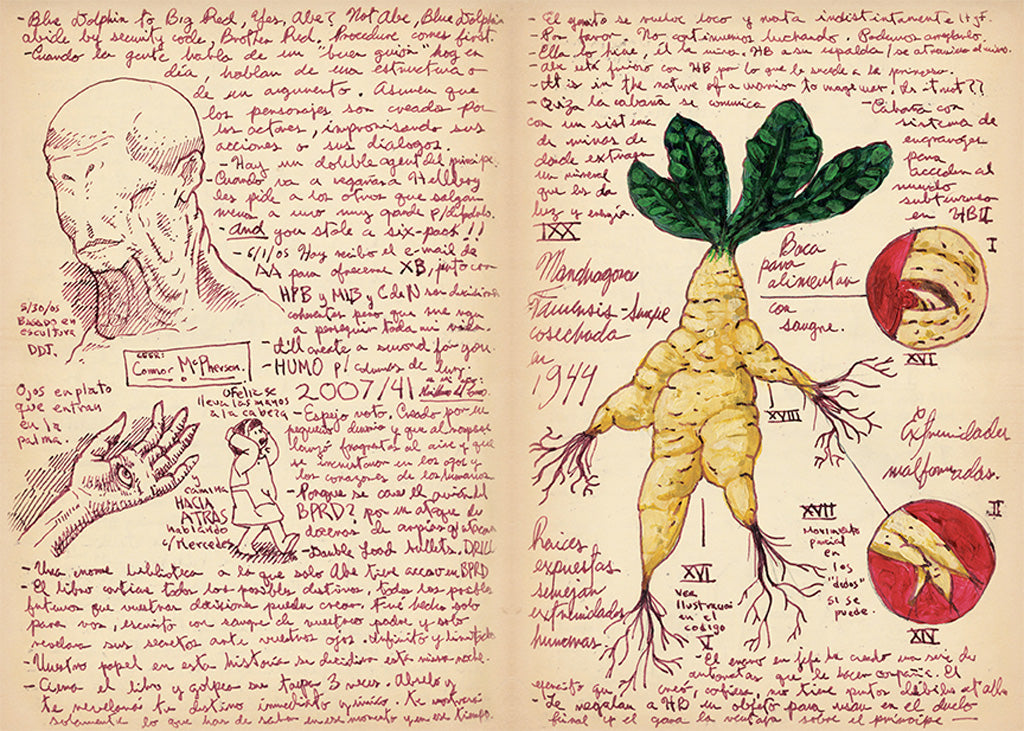 - Blue Dolphin to Big Red, Yes, Abe? Not Abe, Blue Dolphin
abide by security code, Brother Red. Procedure comes first.
- Cuando la gente habla de un "buen guión" hoy en
día, hablan de una estructura o
de un argumento. Asumen que
los personajes son creados por
los actores, improvisando sus
acciones o sus dialogos.
- Hay un doble agent del principe.
Cuando va a regañar a Hellboy
les pide a los otros que salgan
menos a uno muy grande p/
- And you stole a six-pack!!
- 6/1/05 Hoy recibo el e-mail de
AA para ofrecerme XB, justo con
HPB y MLB y C de N
pero que me van
a perseguir toda mi vida.
- I'll create a sword for you.
- HUMO p/ columnas de luz.
5/30/05
Basado en
escultura
DDT.
LEER:
Connor McPherson.
2007/41
Ojos en plato
que entran
en la
palma.
Ofelia se
lleva las manos
a la cabeza
y
camina
HACIA
ATRAS
hablando
c/Mercedes
- Espejo roto. Creado por un
pequeño demonio y que al romperse
lanzó fragmentos al aire y que
se incrustaron en los ojos y
los corazones de los humanos
- Porque se cae el avión del
BPRD? por un ataque de
docenas de arpias y atacan
- Double load bullets. DRILL
- Una enorme biblioteca a la que solo Abe tiene acceso en BPRD
- El libro contiene todos los posibles destinos, todos los posibles
futuros que vuestras decisiones puedan crear. Fué hecho solo
para vos, escrito con sangre de vuestro padre y solo
revelara sus secretos ante vuestros ojos. Infinito y limitado
- Vuestro papel en esta historia se decidira esta misma noche.
- Cierra el libro y golpea su tapa 3 veces. Abrelo y
te revelara tu destino inmediato y único. te mostrará
solamente lo que has de saber en ese momento y en ese tiempo.
- El se vuelve loco y mata indistintamente
- Por favor. No continuemos luchando. Podemos arreglarlo.
- Ella lo hiere, él la mira. HB a su espalda
- Abe está furioso con HB por lo que le sucede a la princesa.
- It is in the nature of a warrior to wage war. Is it not??
- Quiza la cabaña se comunica
con un sistema
de minas de
donde extraen
un mineral
que les da
luz y energía.
- Cabaña con
sistema de
engranajes
para
acceder al
mundo
subterraneo
en HB II
IXX
Mandragora
Taurensis - Sunque
cosechada
en
1944
Boca
para
alimentar
con
sangre.
I
XVI
XVIII
Extremidades
malformadas.
II
XVII
Movimiento
parcial
en
los
"dedos"
si se
puede.
XIV
Raices
expuestas
semejan
extremidades
humanas.
XVI
ver
Ilustracion
en el
codigo
V
- El enano en jefe ha creado una serie de
automatas que le hacen compañia. El
ejercito que creó, confiesa, no tiene puntos débiles
- Le regalan a HB un objeto para usar en el duelo
final y el gana la ventaja sobre el principe —